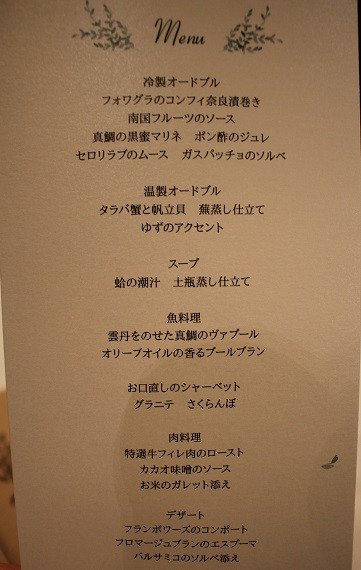 Menu
冷製オードブル
フォワグラのコンフィ奈良漬巻き
南国フルーツのソース
真鯛の黒蜜マリネ　ポン酢のジュレ
セロリラブのムース　ガスパッチョのソルベ
温製オードブル
タラバ蟹と帆立貝　蕪蒸し仕立て
ゆずのアクセント
スープ
蛤の潮汁　土瓶蒸し仕立て
魚料理
雲丹をのせた真鯛のヴァプール
オリーブオイルの香るブールブラン
お口直しのシャーベット
グラニテ　さくらんぼ
肉料理
特選牛フィレ肉のロースト
カカオ味噌のソース
お米のガレット添え
デザート
フランボワーズのコンポート
フロマージュブランのエスプーマ
バルサミコのソルベ添え